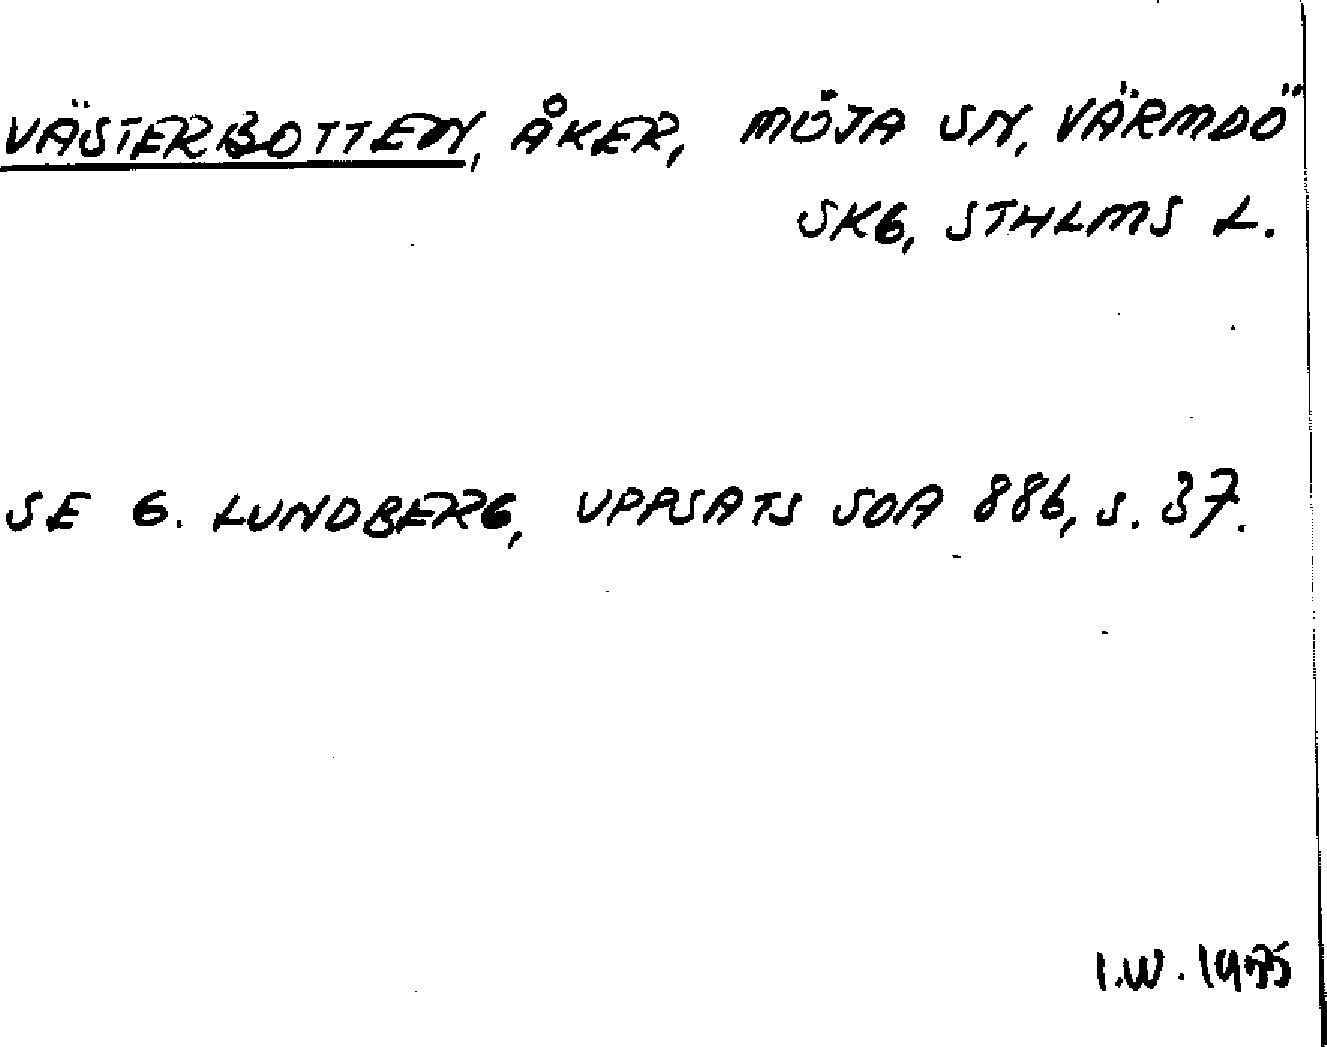 VÄSTERBOTTEN, ÅKER, MÖJA SN, VÄRMDÖ
SKG, STHLMS L.
SE G. LUNDBERG, UPPSATS SOA 886, S. 37.
I.W. 1975